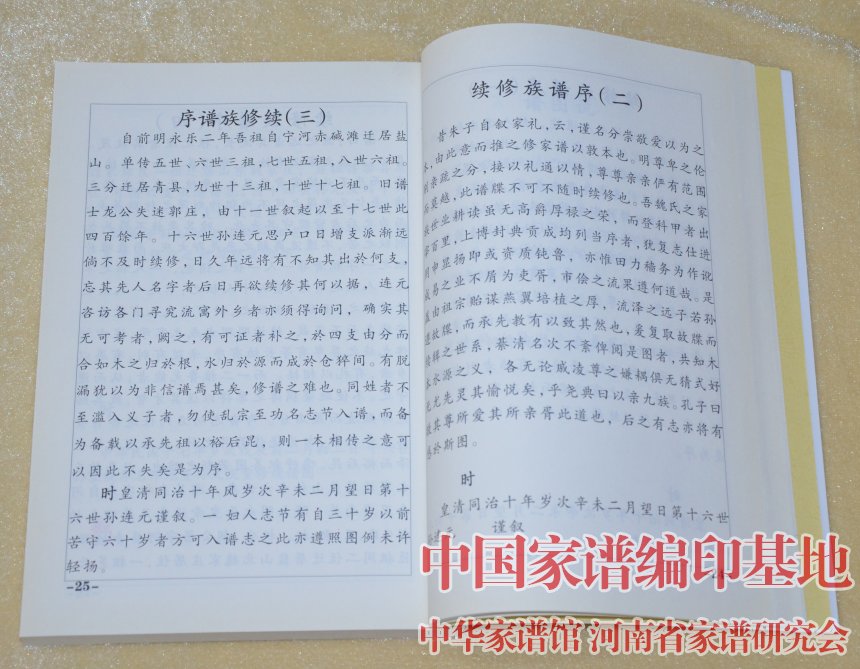 序谱族修续(三)
自前明永乐二年吾祖自宁河赤碱滩迁居盐
山。单传五世、六世三祖，七世五祖，八世六祖。
三分迁居青县，九世十三祖，十世十七祖。旧谱
士龙公失迷郭庄，由十一世叙起以至十七世此
四百馀年。十六世孙连元思户口日增支派渐远
倘不及时续修，日久年远将有不知其出於何支，
忘其先人名字者后日再欲续修其何以据，连元
咨访各门寻究流寓外乡者亦须得询问，确实其
无可考者，阙之，有可证者补之，於四支由分而
合如木之归於根，水归於源而成於仓猝间。有脱
漏犹以为非信谱焉甚矣，修谱之难也。同姓者不
至滥入义子者，勿使乱宗至功名志节入谱，而备
为备载以承先祖以裕后昆，则一本相传之意可
以因此不失矣是为序。
时皇清同治十年风岁次辛未二月望日第十
六世孙连元谨叙。一妇人志节有自三十岁以前
苦守六十岁者方可入谱志之此亦遵照图例未许
轻扬。
-25-
续修族谱序(二)
昔朱子自叙家礼，云，谨名分崇敬爱以为之
本，由此意而推之修家谱以敦本也。明尊卑之伦
别亲疏之分，接以礼通以情，尊尊亲亲俨有范围
而莫越，此谱牒不可不随时续修也。吾魏氏之家
世业耕读虽无高爵厚禄之荣，而登科甲者出
宰百里，上博封典贡成均列当序者，犹复志仕进
显扬即或资质钝鲁，亦惟田力穑务为作说
易之业不屑为吏胥，市侩之流果遵何道哉。是
由祖宗贻谋燕翼培植之厚，流泽之远子若孙
敬牒，而承先教有以致其然也，爰复取故牒而
续辑之世系，綦清名次不紊俾阅是图者，共知木
本水源之义，各无论戚凌尊之嫌耦俱无猜式好
无尤先灵其愉悦矣，乎尧典曰以亲九族。孔子曰
敬其尊所爱其所亲胥此道也，后之有志亦将有
感於斯图。
时
皇清同治十年岁次辛未二月望日第十六世
孙连元 谨叙
中国家谱编印基地
中华家谱馆 河南省家谱研究会